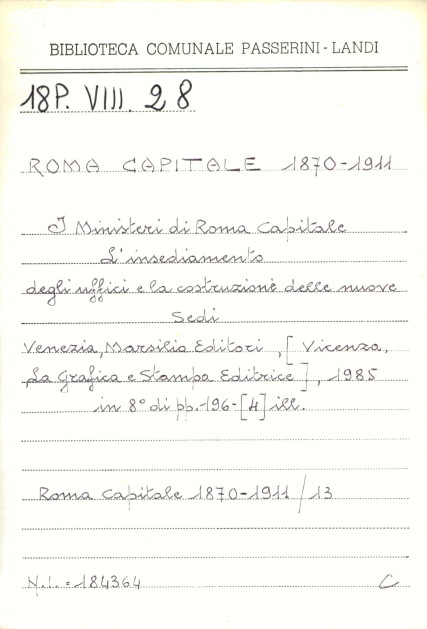 BIBLIOTECA COMUNALE PASSERINI - LANDI
18P. VIII. 28
ROMA CAPITALE 1870-1911
I Ministeri di Roma Capitale
L'insediamento
degli uffici e la costruzione delle nuove
Sedi
Venezia, Marsilio Editori, [Vicenza,
La Grafica e Stampa Editrice], 1985
in 8° di pp. 196-[4] ill.
Roma Capitale 1870-1911/13
N.I. = 184364 C